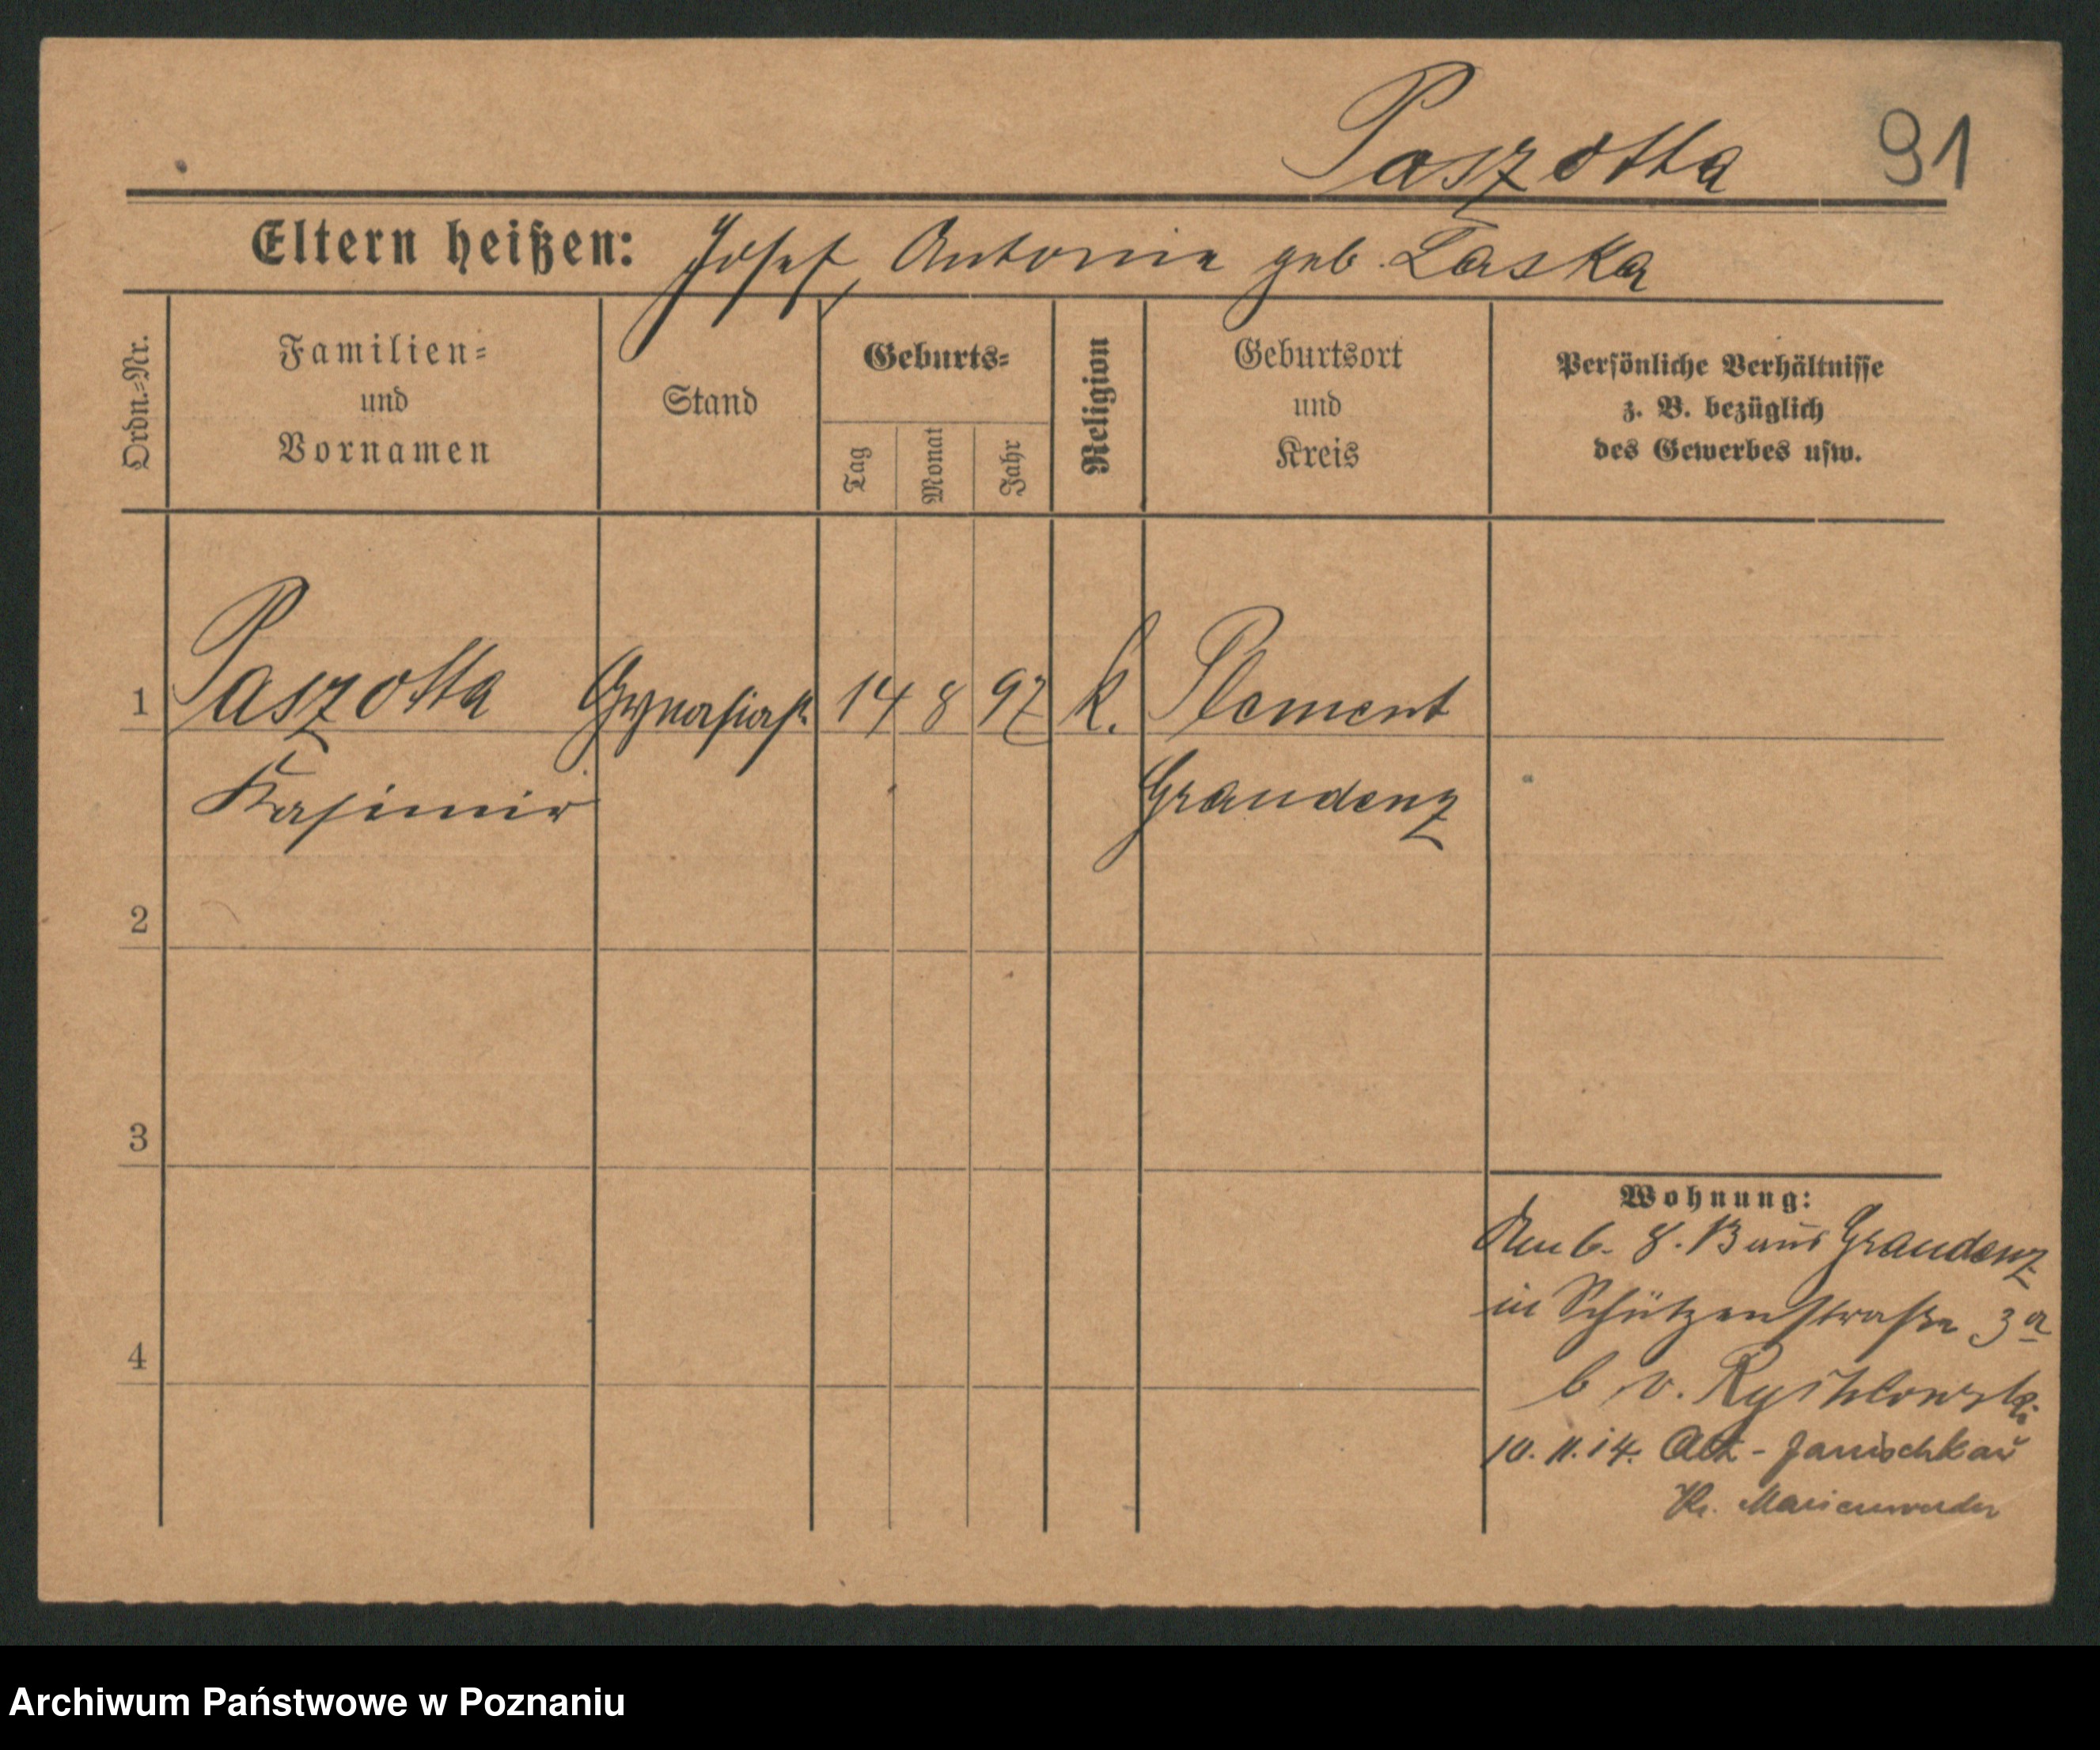 Paszotta 91
Eltern heißen: Josef, Antonie geb. Laska
Ordn.=Nr.
Familien=
und
Vornamen
Stand
Geburts=
Tag
Monat
Jahr
Religion
Geburtsort
und
Kreis
Persönliche Verhältnisse
z. B. bezüglich
des Gewerbes usw.
1 Paszotta Gymnasiast 14 8 97 k. Plement
Kasimir Graudenz
2
3
4
Wohnung:
8. 13 aus Graudenz
in Schützenstraße 3a
b v.
10. 11. 14. Alt-Janischkau
Kr. Marienwerder
Archiwum Państwowe w Poznaniu